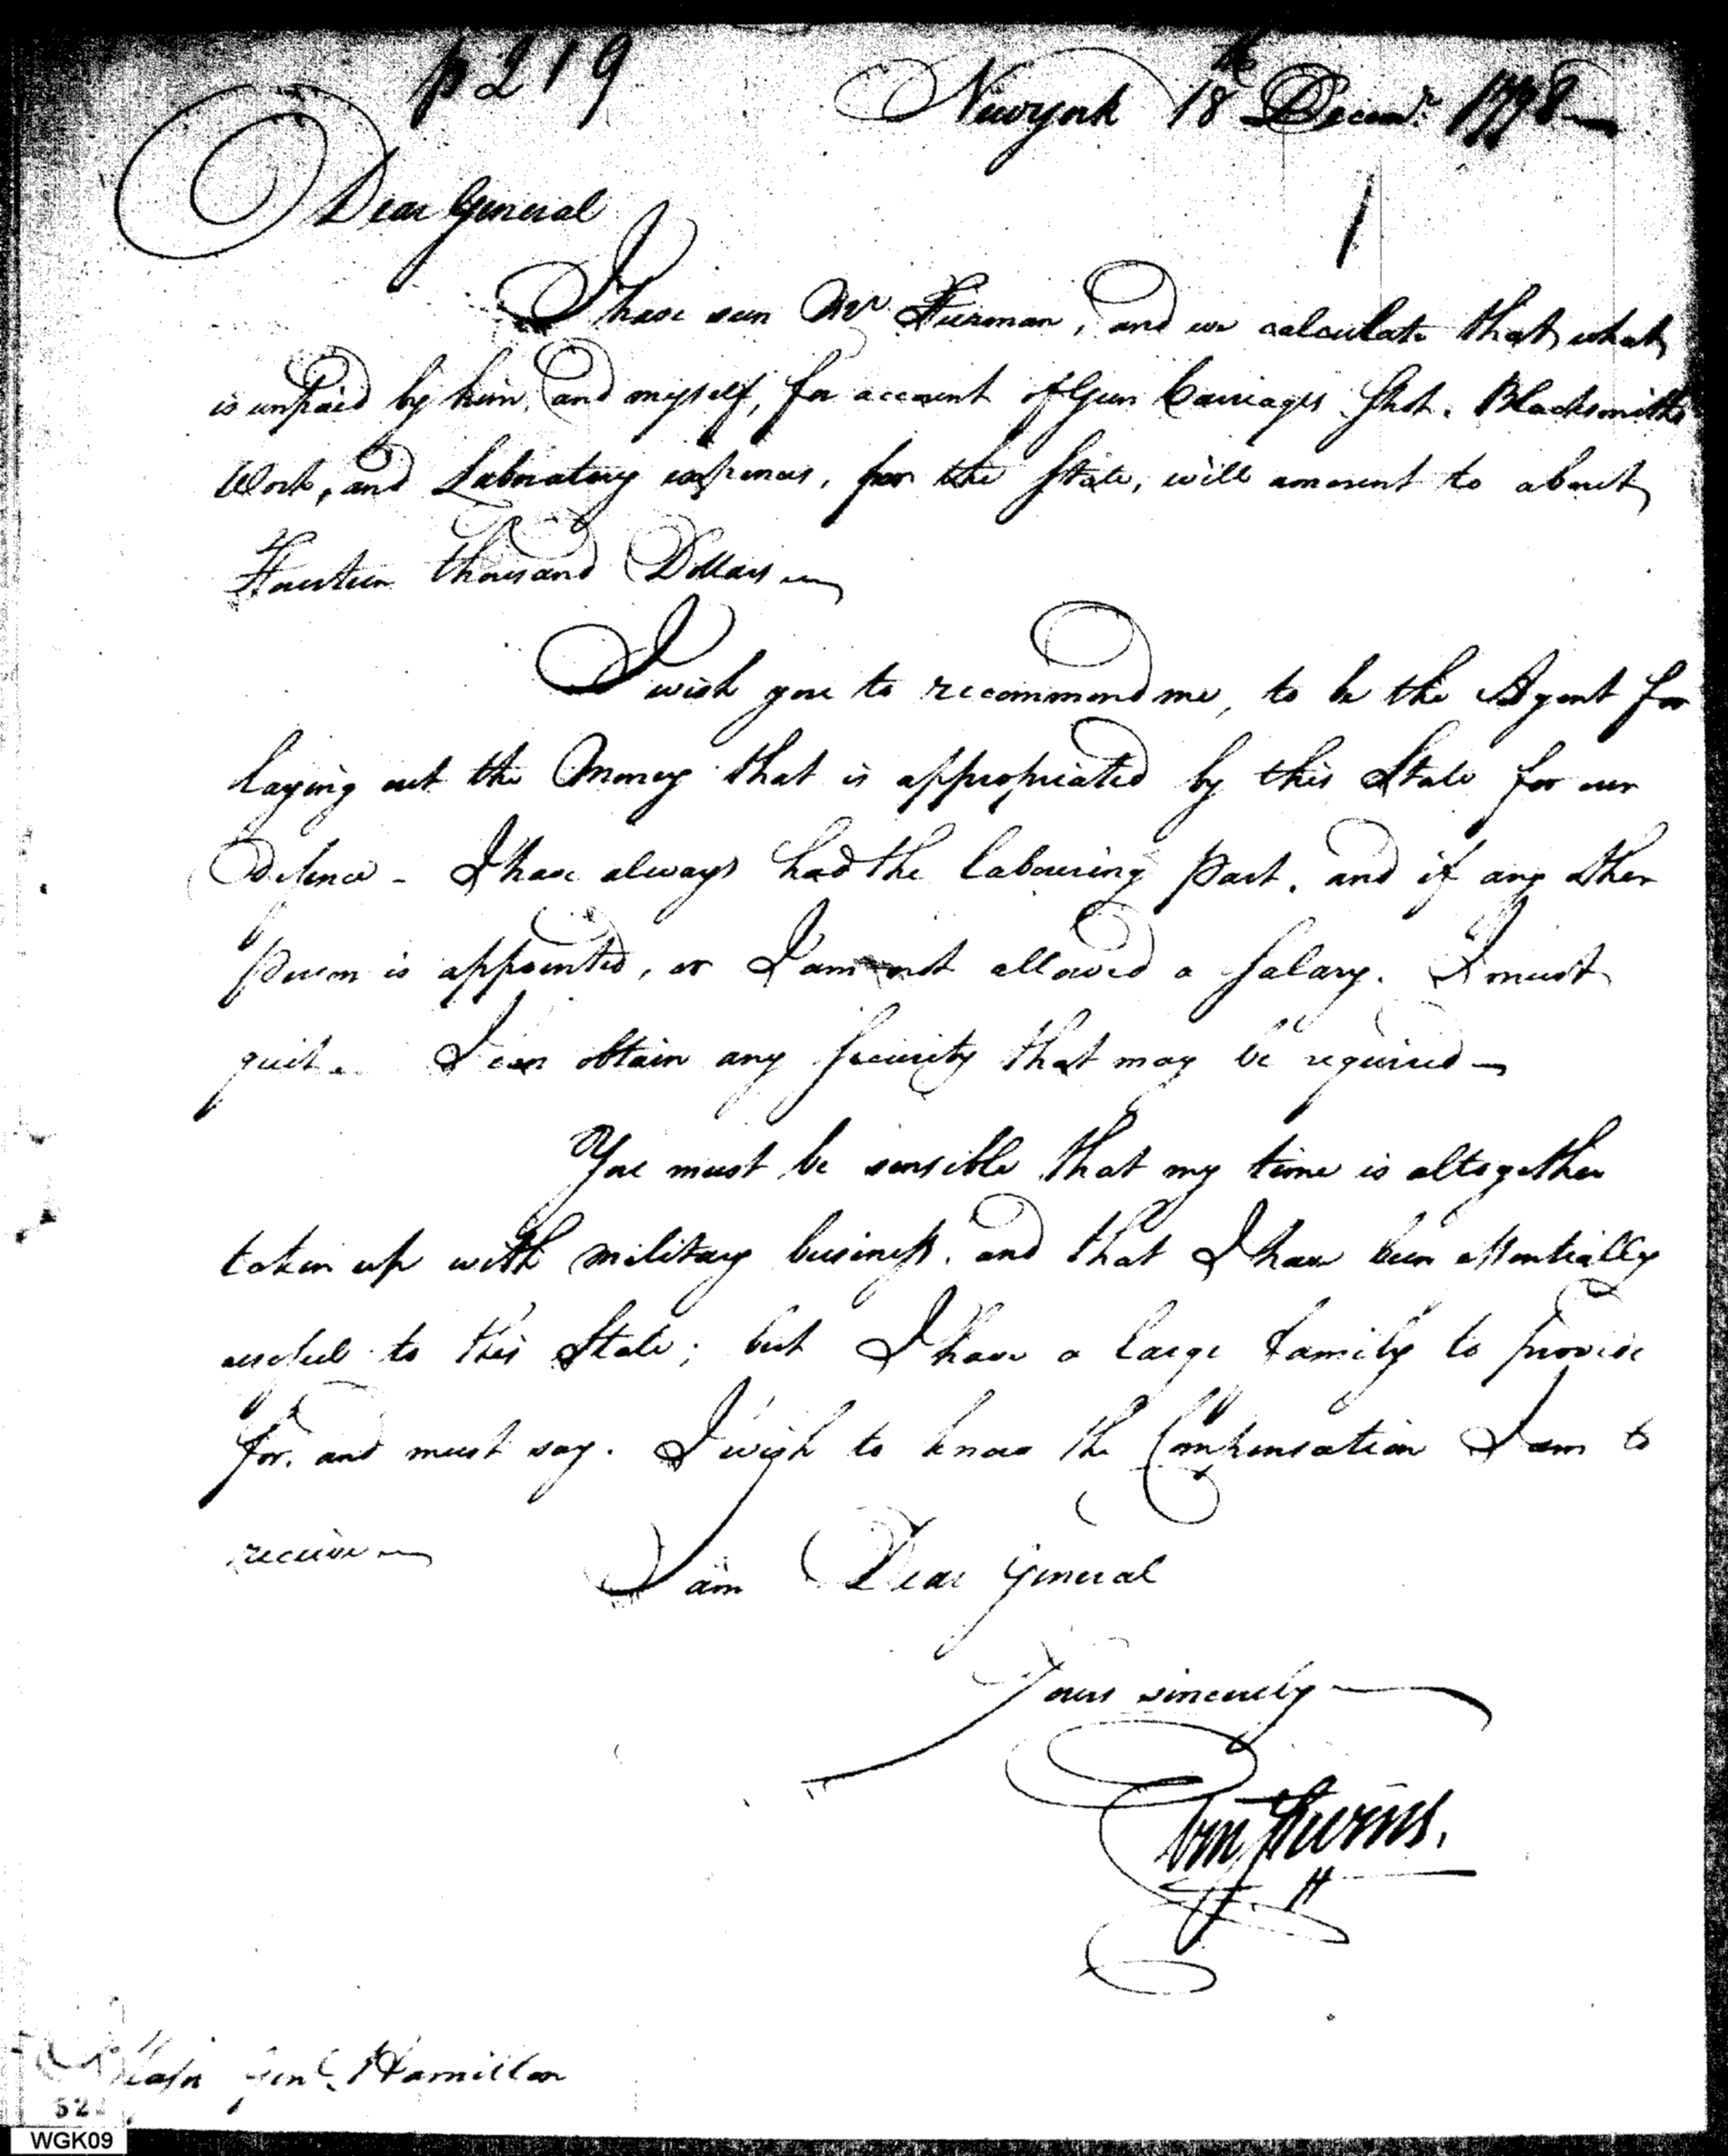 p 219
Newyork 18th Decemr. 1798—
Dear General
I have seen Mr Furman, and we calculate that what
is unpaid by him, and myself, for account of Gun Carriages Shot. Blacksmiths
Work, and Laboratory expences, for the State, will amount to about
Fourteen thousand Dollars —
I wish you to recommend me, to be the Agent for
laying out the Money that is appropriated by this State for our
Defence - I have always had the labouring part, and if any other
person is appointed, or I am not allowed a Salary. I must
quit. I can obtain any Security that may be required —
You must be sensible that my time is altogether
taken up with military business, and that I have been essentially
useful to this State; but I have a large family to provide
for, and must say. I wish to know the Compensation I am to
receive —
I am Dear General
Yours sincerely —
Eben Stevens.
Major Genl. Hamilton
52
WGK09